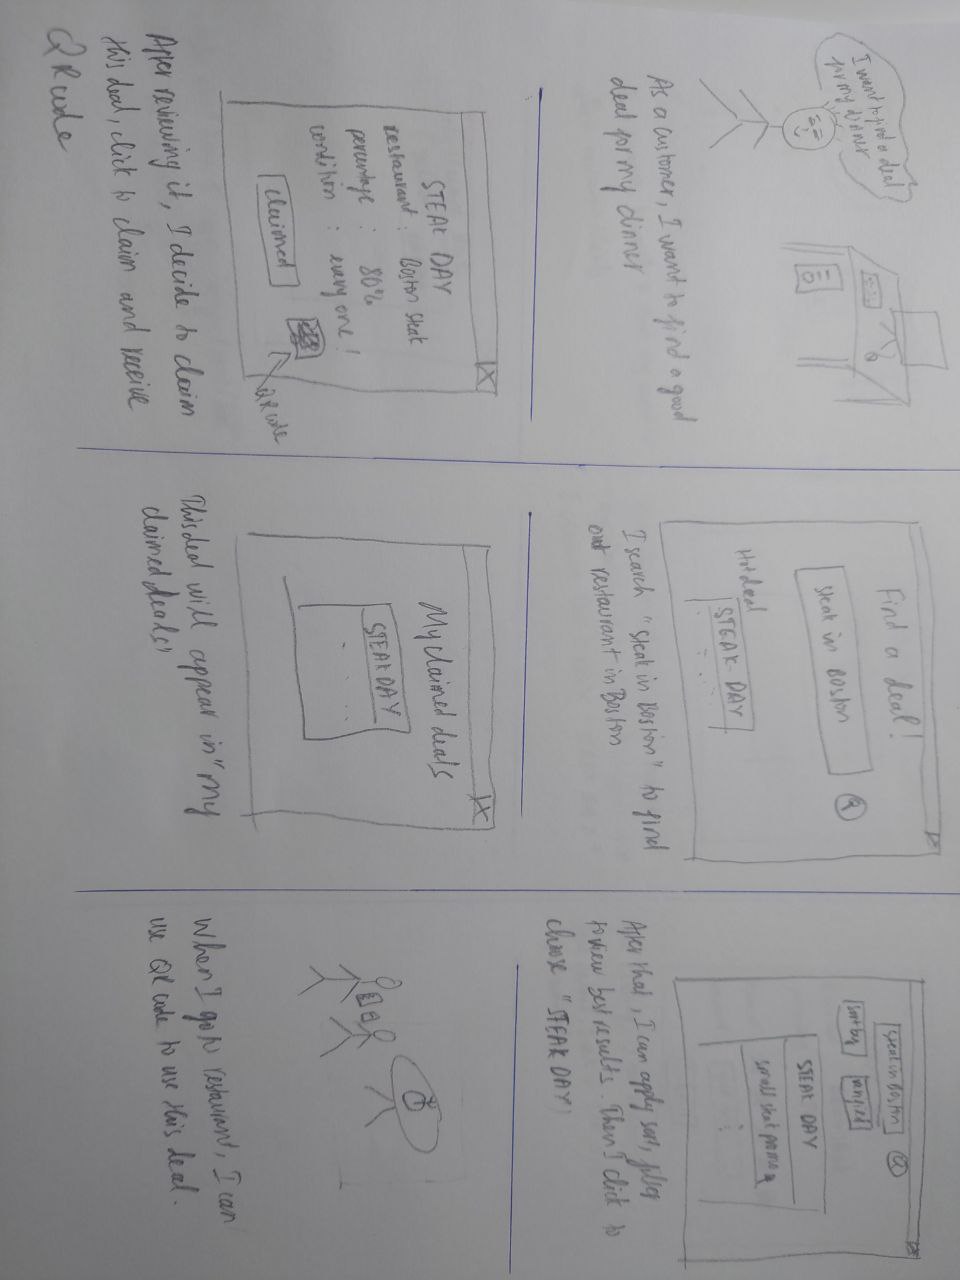 I want to find a deal
for my dinner
As a customer, I want to find a good
deal for my dinner
Find a deal!
Steak in Boston
Hot deal
STEAK DAY
I search "Steak in Boston" to find
out restaurant in Boston
Steak in Boston
sort by
verified
STEAK DAY
small steak promo
After that, I can apply sort, filter
to view best results. Then I click to
choose "STEAK DAY"
STEAK DAY
restaurant : Boston Steak
percentage : 80%
condition : every one!
Claimed
QR code
After reviewing it, I decide to claim
this deal, click to claim and receive
QR code
My claimed deals
STEAK DAY
This deal will appear in "my
claimed deals"
When I go to restaurant, I can
use QR code to use this deal.